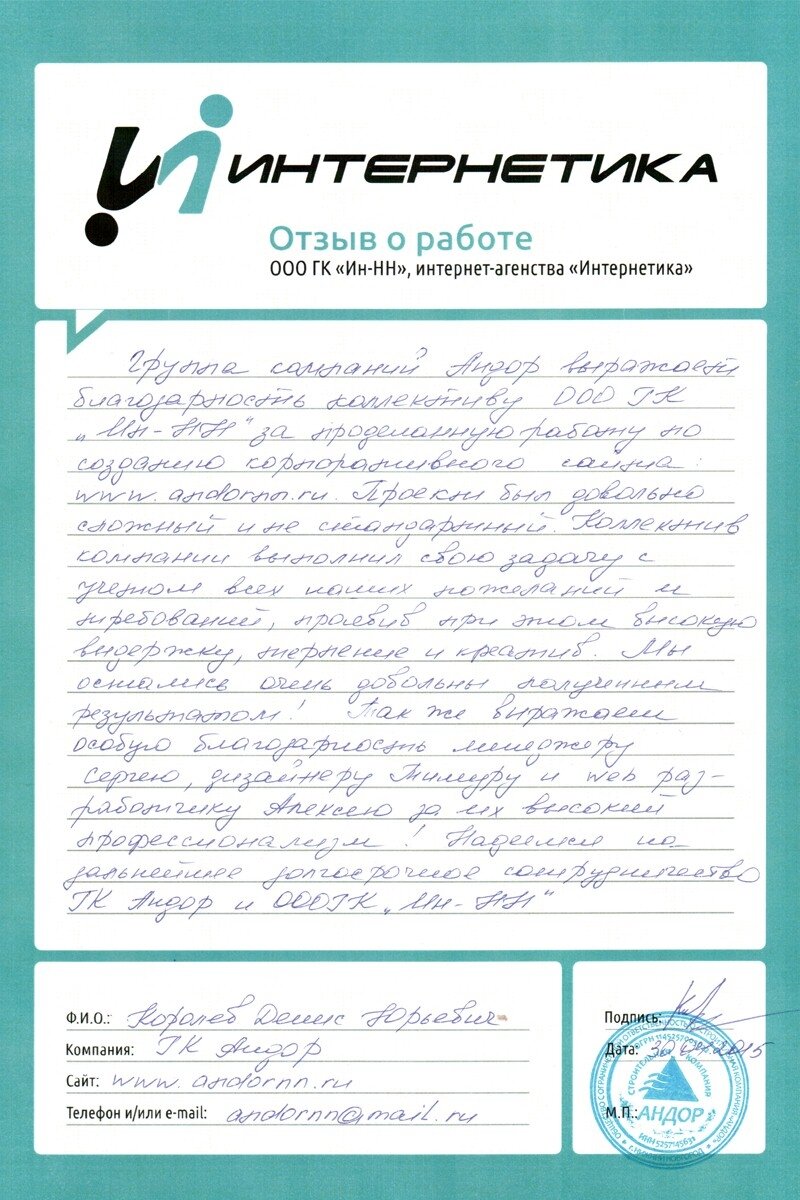 ИНТЕРНЕТИКА
Отзыв о работе
ООО ГК «Ин-НН», интернет-агенства «Интернетика»
Группа компаний Андор выражает
благодарность коллективу ООО ГК
„Ин-НН" за проделанную работу по
созданию корпоративного сайта:
www.andornn.ru. Проект был довольно
сложный и не стандартный. Коллектив
компании выполнил свою задачу с
учетом всех наших пожеланий и
требований, проявив при этом высокую
выдержку, терпение и креатив. Мы
остались очень довольны полученным
результатом! Так же выражаем
особую благодарность менеджеру
Сергею, дизайнеру Тимуру и web раз-
работчику Алексею за их высокий
профессионализм! Надеемся на
дальнейшее долгосрочное сотрудничество
ГК Андор и ООО ГК „Ин-НН"
Ф.И.О.: Королев Денис Юрьевич
Компания: ГК Андор
Сайт: www.andornn.ru
Телефон и/или e-mail: andornn@mail.ru
Подпись:
Дата: 30 2015
М.П.:
СТРОИТЕЛЬНАЯ КОМПАНИЯ
АНДОР
Г. НИЖНИЙ НОВГОРОД